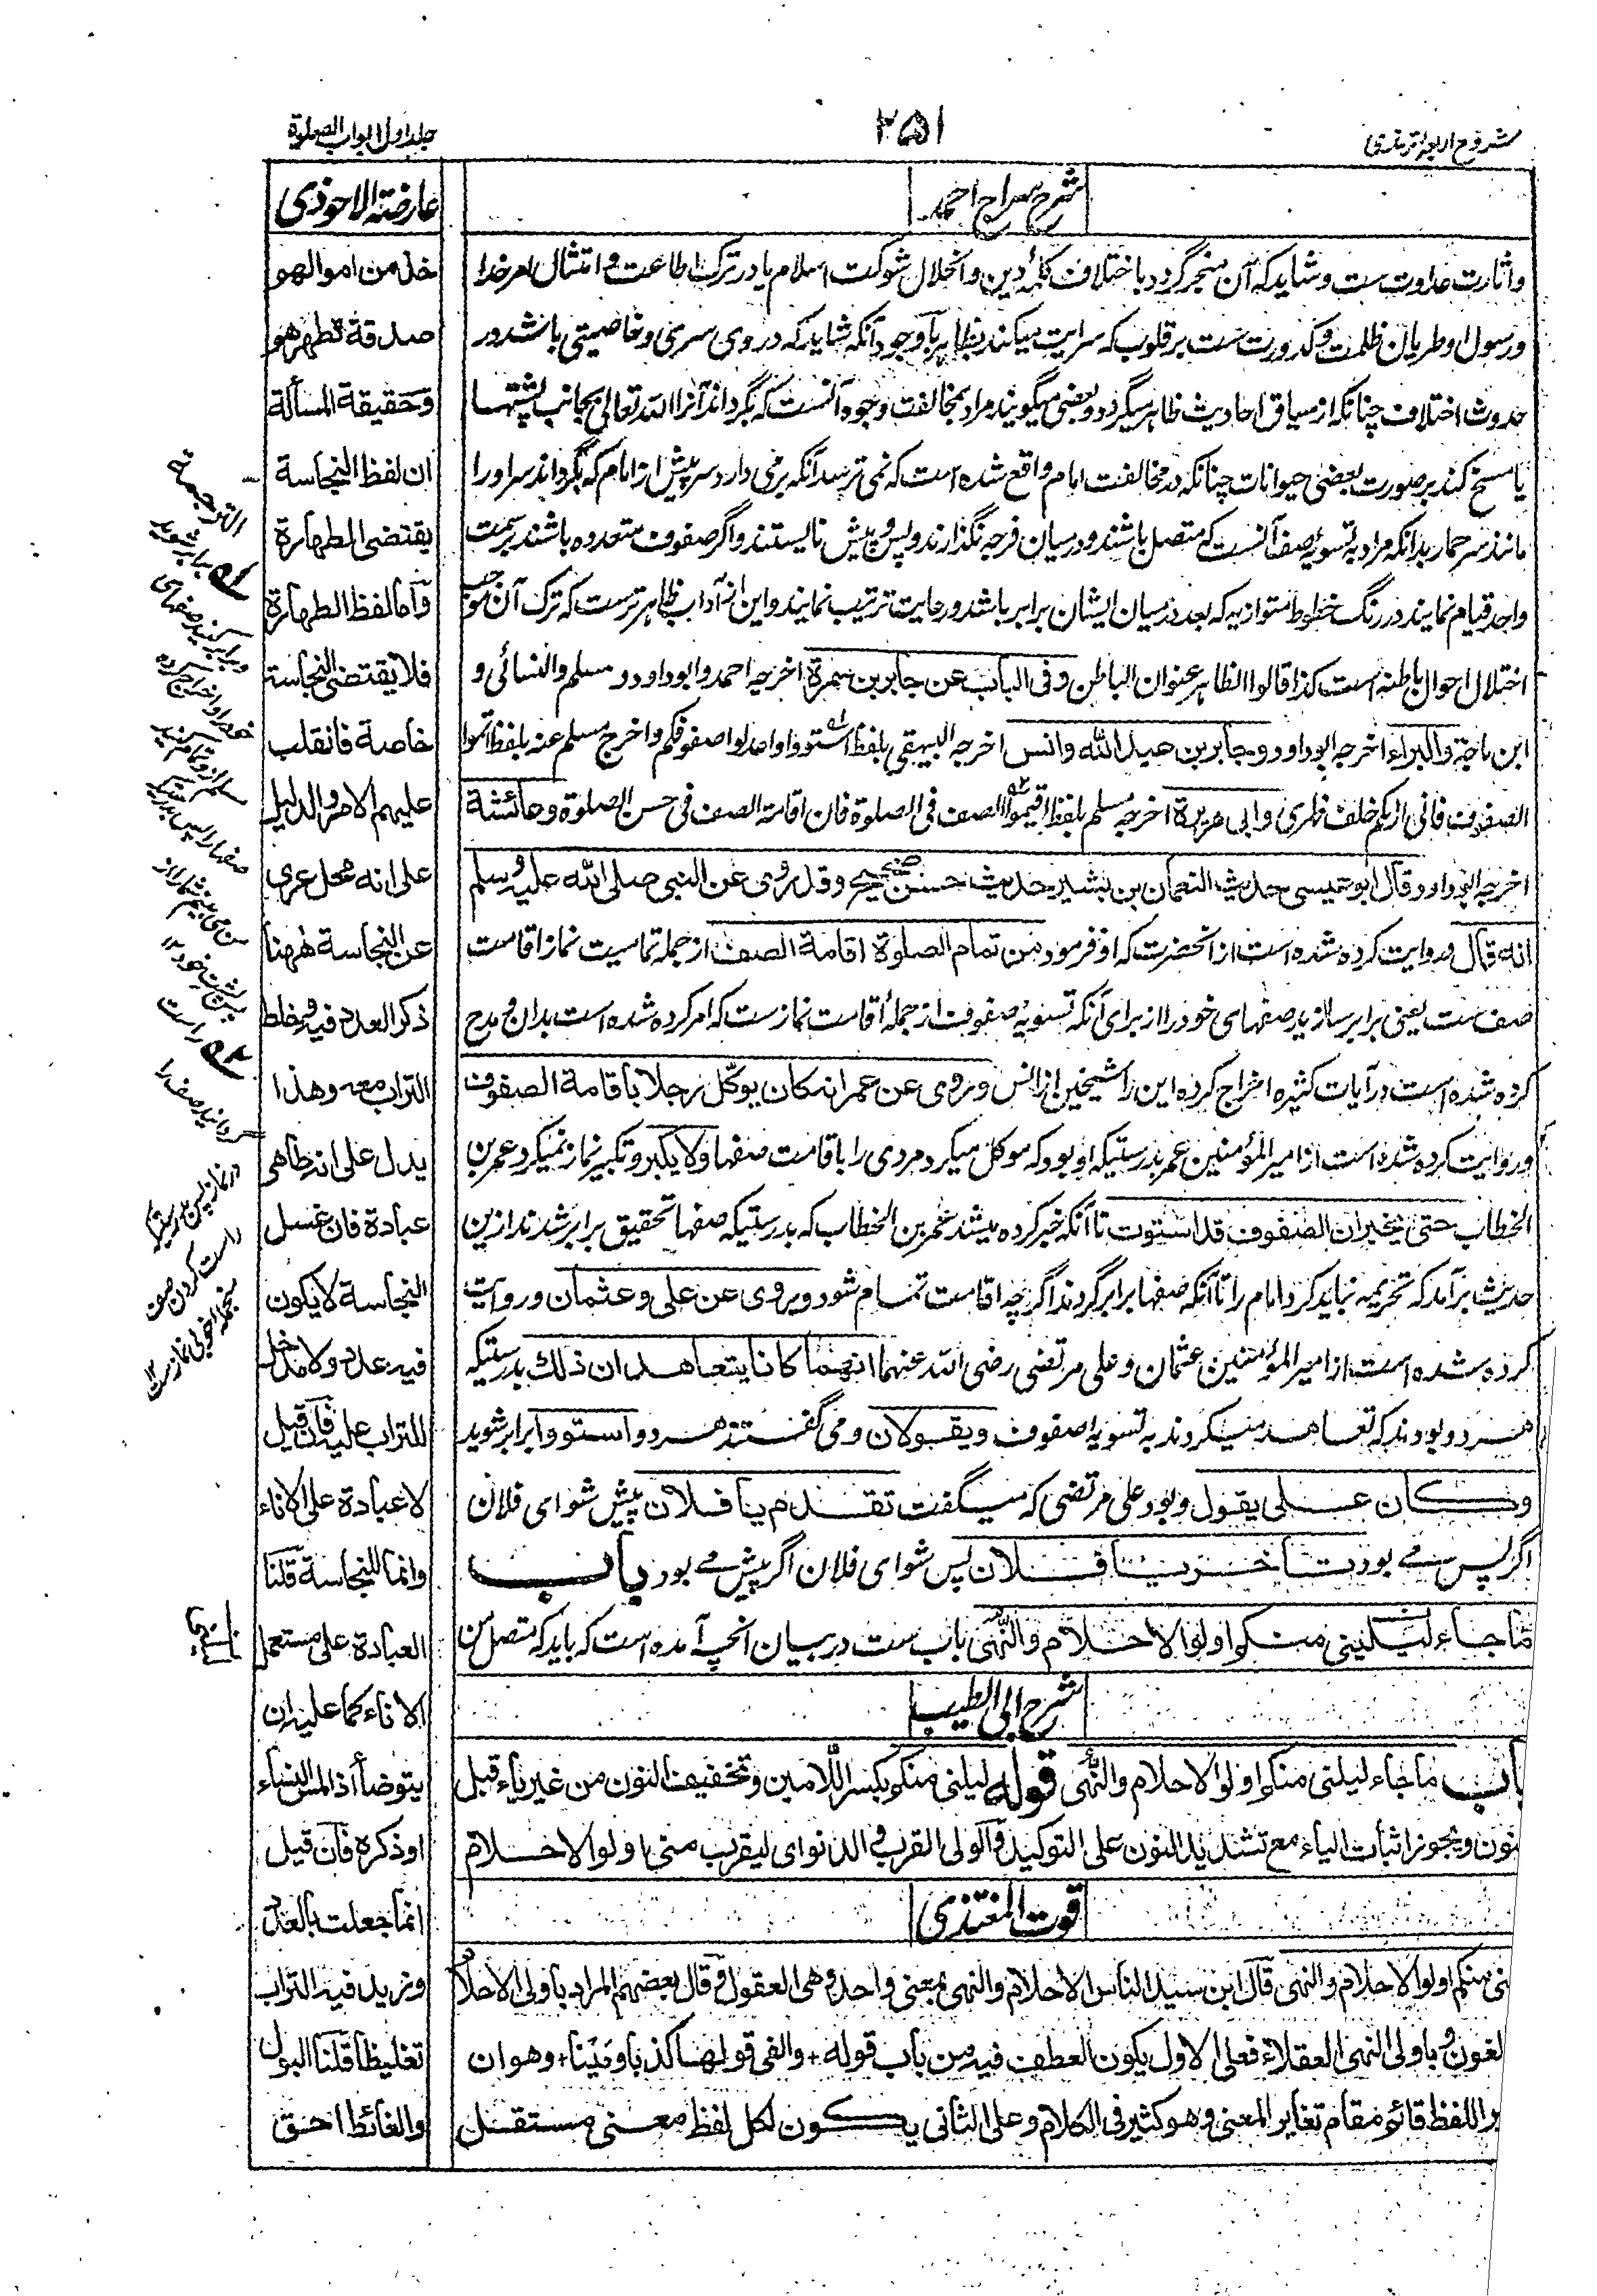 شروح اربعه ترمذی
۲۵۱
جلد اول ابواب الصلوة
شرح سراج احمد
واثارت عداوت ست و شاید که آن منجر گردد باختلافت کلمهٔ دین و انحلال شوکت اسلام یا در ترک اطاعت و امتثال امر خدا
ورسول او طریان ظلمت و کدورت ست بر قلوب که سرایت میکند بظاهر باوجود آنکه شاید که در وی سری و خاصیتی باشد در
حدوث اختلاف چنانکه از سیاق احادیث ظاهر میگردد و بعضی میگویند مراد بمخالفت وجوه آنست که بگرداند آنرا الله تعالی بجانب پشتها
یا مسخ کند بر صورت بعضی حیوانات چنانکه در مخالفت امام واقع شده است که نمی ترسد آنکه بر می دارد سر پیش از امام که بگرداند سر او را
مانند سر حمار بدانکه مراد به تسویه صف آنست که متصل باشند و درمیان فرجه نگذارند و پس و پیش نایستند و اگر صفوف متعدده باشند بر سمت
واحد قیام نمایند در رنگ خطوط متوازیه که بعد درمیان ایشان برابر باشد و رعایت ترتیب نمایند و این از آداب ظاهر ترست که ترک آن موجب
اختلال احوال باطنه است کذا قالوا الظاهر عنوان الباطن وفی الباب عن جابر بن سمرة اخرجه احمد وابو داود ومسلم والنسائی و
ابن ماجة والبراء اخرجه ابو داود وجابر بن عبد الله وانس اخرجه البیهقی بلفظ استووا واعدلوا صفوفکم واخرج مسلم عنه بلفظ اتموا
الصفوف فانی اراکم خلف ظهری وابی هریرة اخرجه مسلم بلفظ اقیموا الصف فی الصلوة فان اقامة الصف فی حسن الصلوة وعائشة
اخرجه ابو داود قال ابو عیسی حدیث النعمان بن بشیر حدیث حسن صحیح وقد روی عن النبی صلی الله علیه وسلم
انه قال وروایت کرده شده است از آنحضرت که او فرمود من تمام الصلوة اقامة الصف از جمله تمامیت نماز اقامت
صف ست یعنی برابر سازید صفهای خود را از برای آنکه تسویه صفوف از جملهٔ اقامت نماز ست که امر کرده شده است بدان و مدح
کرده شده است در آیات کثیره اخراج کرده این را شیخین از انس وروی عن عمر انه کان یوکل رجلا باقامة الصفوف
وروایت کرده شده است از امیر المؤمنین عمر بدرستیکه او بود که موکل میکرد مردی را باقامت صفها ولا یکبر و تکبیر نماز نمیکرد عمر بن
الخطاب حتی یخبر ان الصفوف قد استوت تا آنکه خبر کرده میشد عمر بن الخطاب که بدرستیکه صفها تحقیق برابر شدند ازین
حدیث برآمد که تحریمه نباید کرد امام را تا آنکه صفها برابر گردند اگر چه اقامت تمام شود ویروی عن علی وعثمان وروایت
کرده شده است از امیر المؤمنین عثمان وعلی مرتضی رضی الله عنهما انهما کانا یتعاهدان ذلك بدرستیکه
هر دو بودند که تعاهد میکردند به تسویه صفوف ویقولان و می گفتند هر دو استووا برابر شوید
وکان علی یقول و بود علی مرتضی که میگفت تقدم یا فلان پیش شو ای فلان
اگر پس می بود تاخر یا فلان پس شو ای فلان اگر پیش می بود باب
ما جاء لیلینی منکم اولو الاحلام والنهی باب ست در بیان آنچه آمده است که باید که متصل من
شرح ابی الطیب
باب ما جاء لیلنی منکم اولو الاحلام والنهی قوله لیلنی منکم بکسر اللامین وتخفیف النون من غیر یاء قبل
نون ویجوز اثبات الیاء مع تشدید النون علی التوکید والولی القرب والدنو ای لیقرب منی اولو الاحلام
قوت المغتذی
نی منکم اولو الاحلام والنهی قال ابن سید الناس الاحلام والنهی بمعنی واحد وهی العقول وقال بعضهم المراد باولی الاحلام
لغون وباولی النهی العقلاء فعلی الاول یکون العطف فیه من باب قوله + والفی قولها کذبا ومینا + وهو ان
یر اللفظ قائم مقام تغایر المعنی وهو کثیر فی الکلام وعلی الثانی یکون لکل لفظ معنی مستقل
عارضة الاحوذی
خذ من اموالهم
صدقة تطهرهم
وحقیقة المسألة
ان لفظ النجاسة
یقتضی الطهارة
واما لفظ الطهارة
فلا یقتضی النجاسة
خاصة فانقلب
علیهم الامر والدلیل
علی انه محل عری
عن النجاسة ههنا
ذکر العدد فیه وخلط
التراب معه وهذا
یدل علی انه طاهر
عبادة فان غسل
النجاسة لا یکون
فیه عدد ولا مدخل
للتراب علیه فان قیل
لا عبادة علی الاناء
وانما للنجاسة قلنا
العبادة علی مستعمل
الاناء کما علیه ان
یتوضأ اذا لمس النساء
او ذکره فان قیل
انما جعلت بالعدد
وزید فیه التراب
تغلیظا قلنا البول
والغائط احق
الترجمة
برابر شوید
وبرابر کنید صفهای
خود را و اخراج کرده
صفها را پس بدرستیکه
من می بینم شما را از
پس پشت خود ۱۲
راست
دارید صف را
در نماز پس بدرستیکه
راست کردن صف
منجمله خوبی نماز ست ۱۲